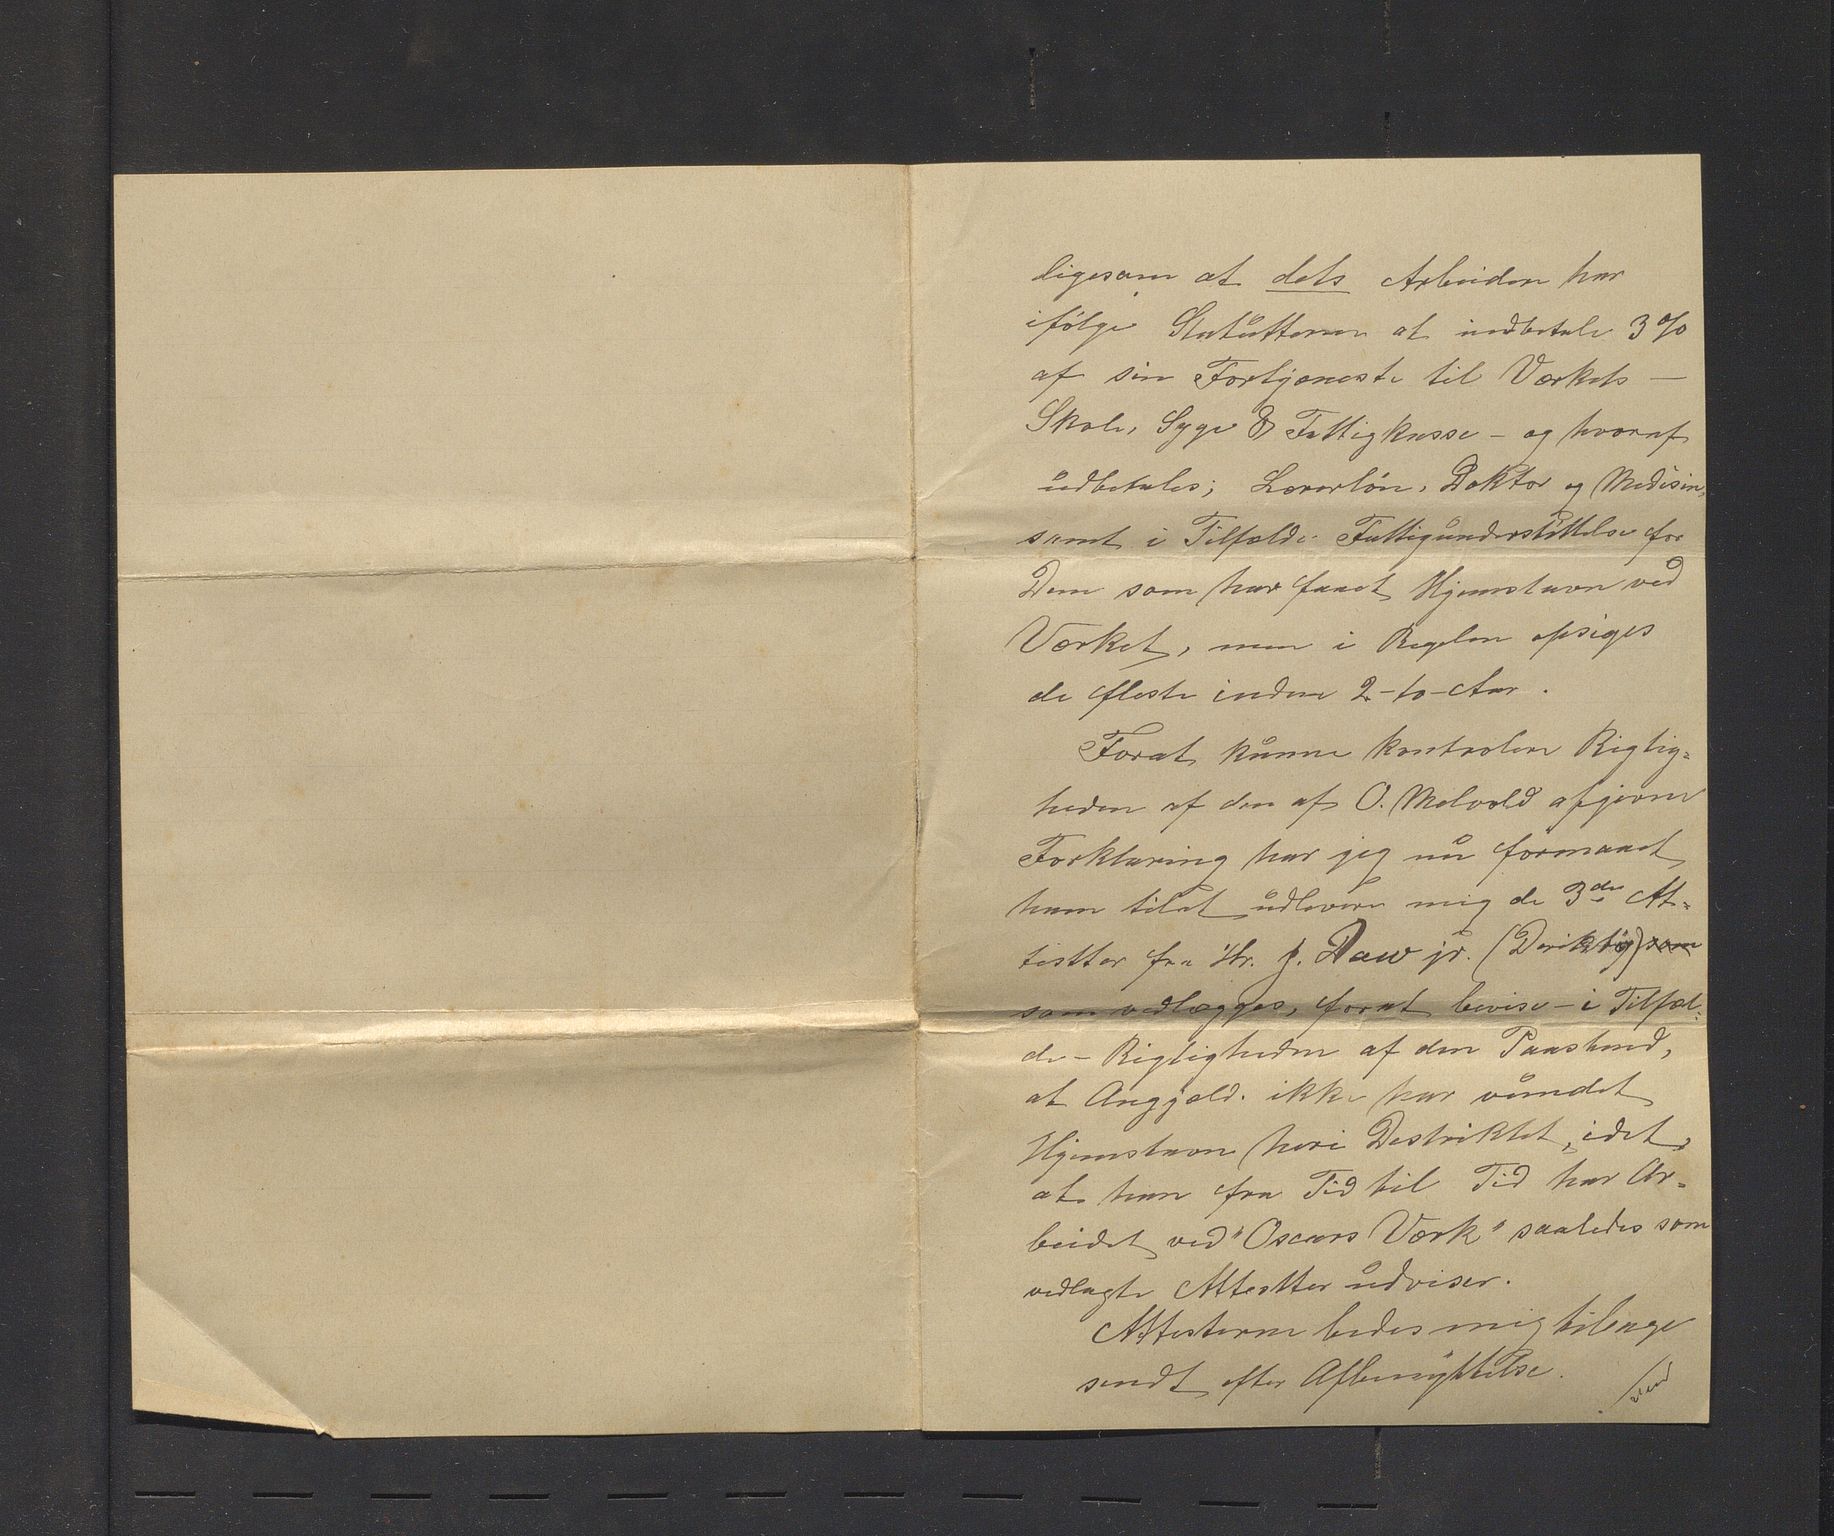 ligesom at dets Arbeidere har
ifølge Statutterne at indbetale 3 %
af sin Fortjeneste til Værkets —
Skole, Syge & Fattigkasse – og hvoraf
udbetales; Lærerløn, Doktor og Medisin,
samt i Tilfælde Fattigunderstøttelse for
Dem som har faaet Hjemstavn ved
Værket, men i Regelen opsiges
de fleste inden 2-to-Aar.
Forat kunne kontrolere Rigtig=
heden af den af O. Melvold afgivne
Forklaring har jeg nu formaaet
ham tilat udlevere mig de 3de At=
testter fra Hr. J. Daw jr. (Deriktør) som
som vedlægges, forat bevise – i Tilfæl=
de – Rigtigheden af den Paastand,
at Angjæld. ikke har vundet
Hjemstavn heri Destriktet, idet,
at han fra Tid til Tid har Ar=
beidet ved "Oscars Værk" saaledes som
vedlagte Attestter udviser.
Attesterne bedes mig tilbage
sendt efter Afbenyttelse.